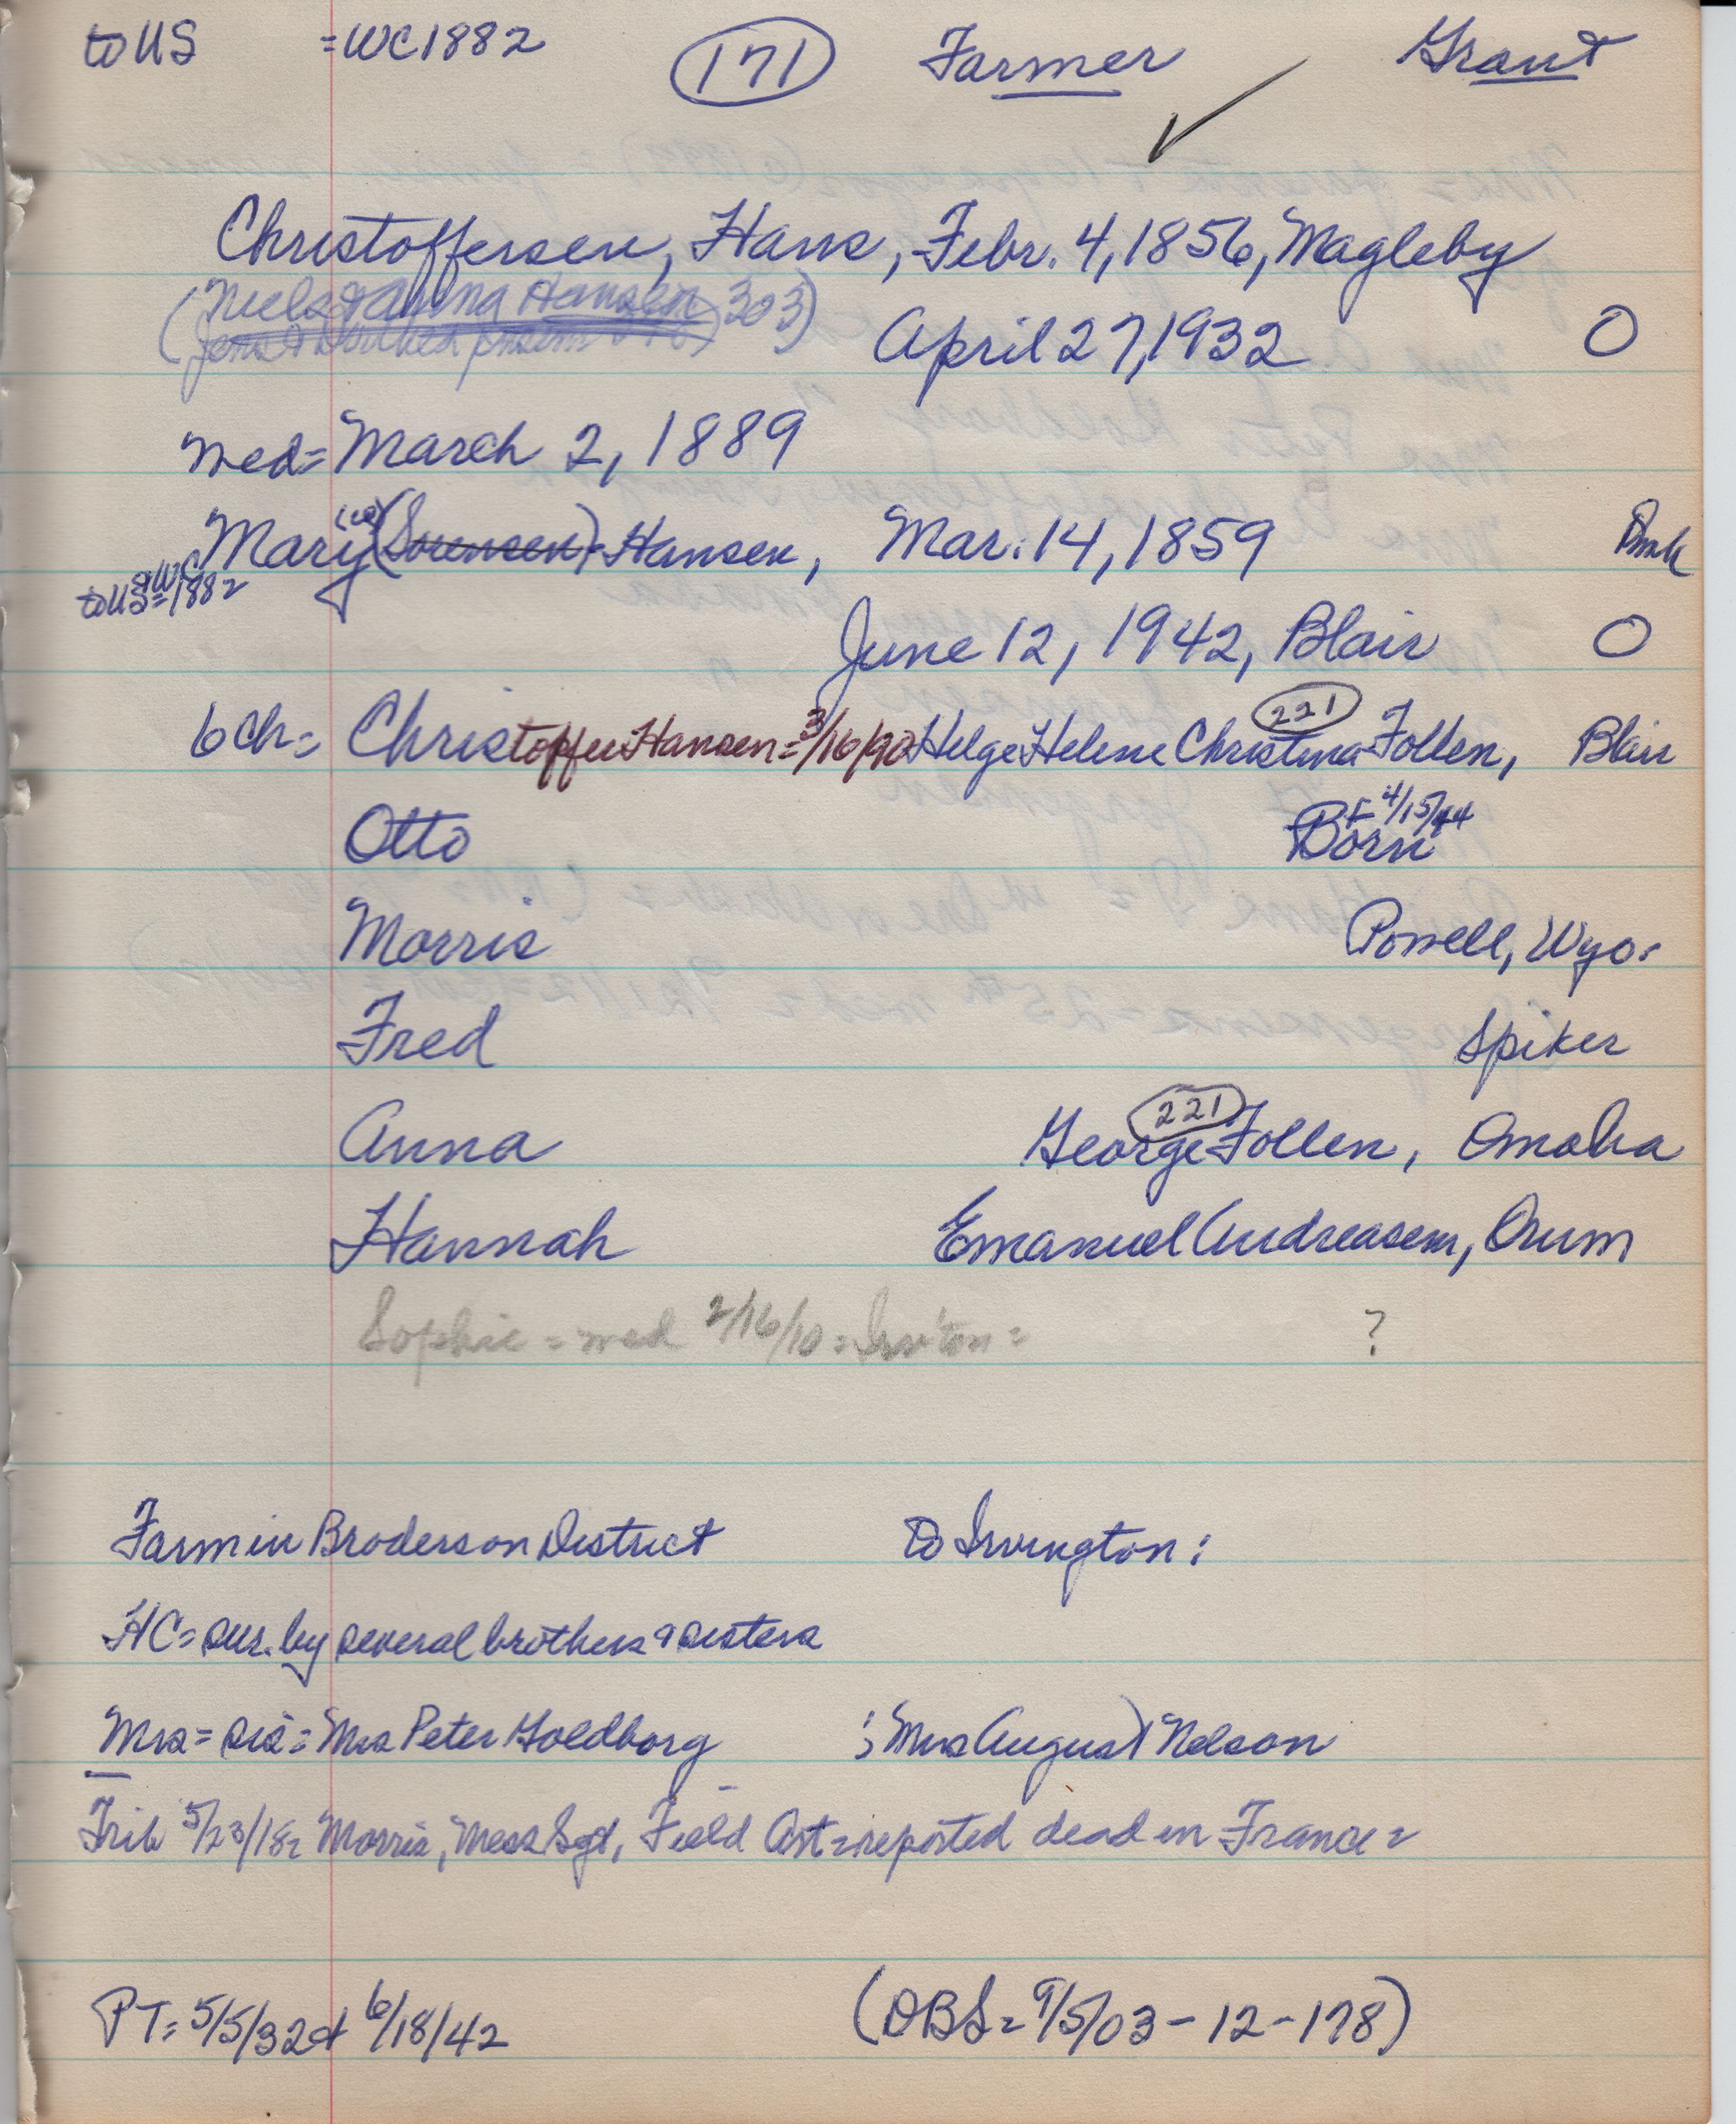 to US =WC1882 171 Farmer Grant
Christoffersen, Hans, Febr. 4, 1856, Magleby
(Niels & Anna Hansen 303)
April 27, 1932 O
med= March 2, 1889
Mary (Sorensen) Hansen, Mar. 14, 1859 Dmk
to US=WC 1882
June 12, 1942, Blair O
221
6 Ch= Christoffer Hansen=3/16/90 Helge Helene Christina Follen, Blair
Otto Born
4/15/44
Morris Powell, Wyo.
Fred Spiker
221
Anna George Follen, Omaha
Hannah Emanuel Andreasen, Orum
Sophie = med 2/16/10 = Irv'ton = ?
Farm in Broderson District to Irvington:
HC= sur. by several brothers & sisters
Mrs= sis= Mrs Peter Goldborg ; Mrs August Nelson
Trib 5/23/18= Morris, Mess Sgt, Field Art=reported dead in France=
PT= 5/5/32 & 6/18/42 (DBS= 9/5/03-12-178)